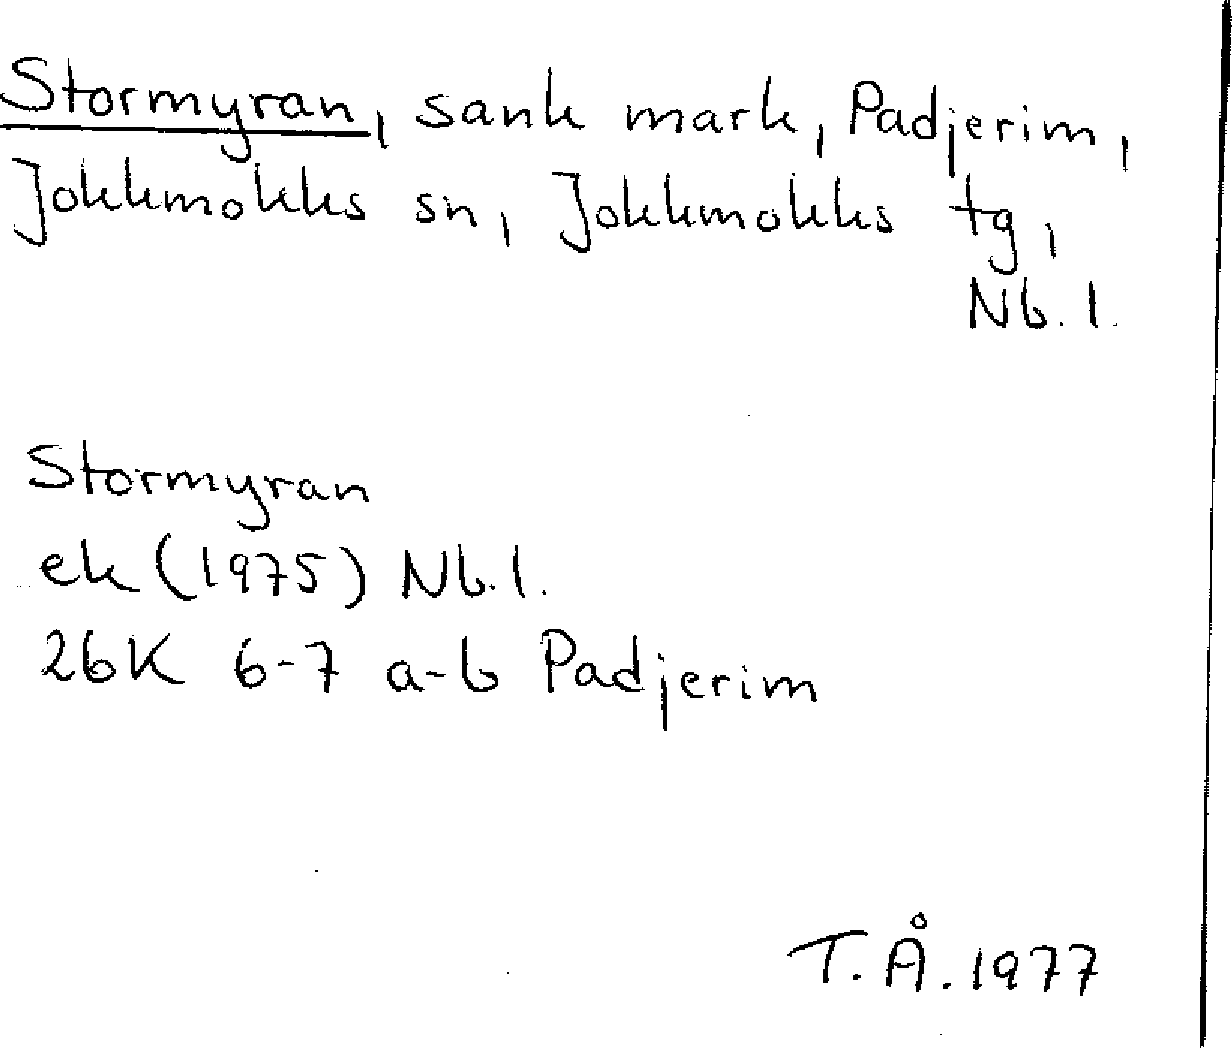 Stormyran, sank mark, Padjerim,
Jokkmokks sn, Jokkmokks tg,
Nb. l.
Stormyran
ek (1975) Nb. l.
26K 6-7 a-b Padjerim
T. Å. 1977